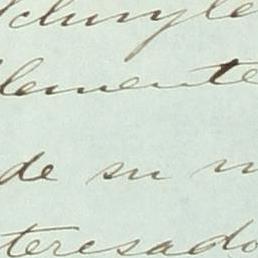 Schuyle
lemente
de su m
teresado